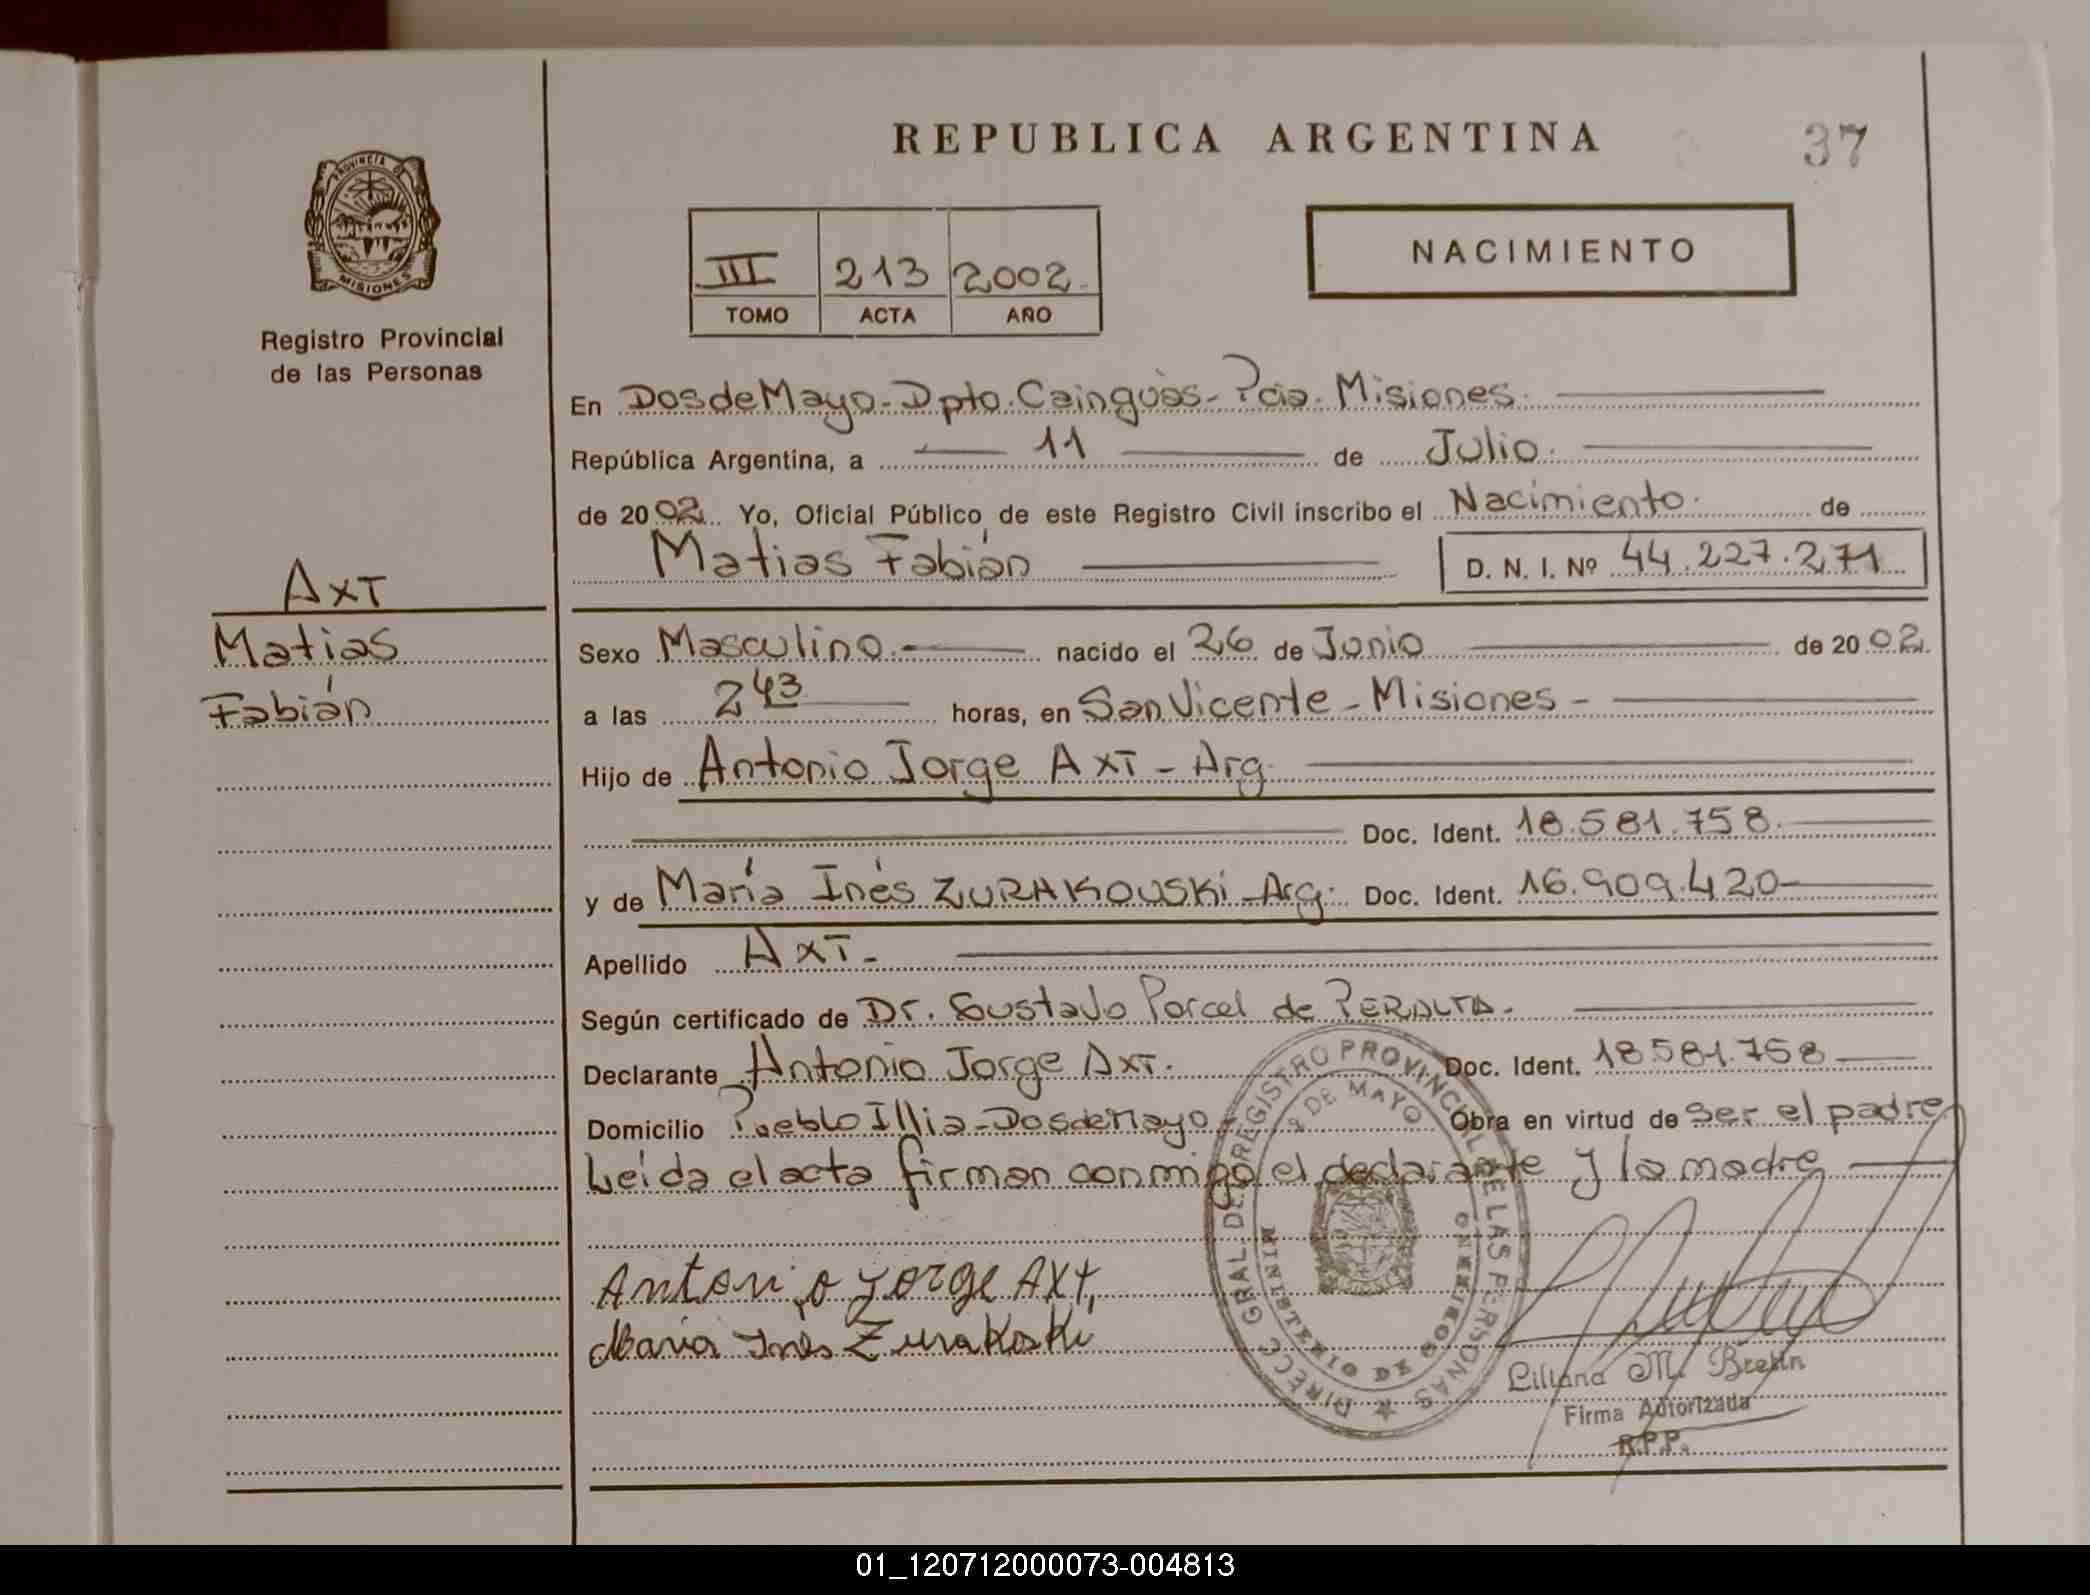 REPUBLICA ARGENTINA
37
PROVINCIA DE
MISIONES
Registro Provincial
de las Personas
III 213 2002
TOMO ACTA AÑO
NACIMIENTO
En Dos de Mayo - Dpto. Cainguás - Pcia. Misiones.
República Argentina, a 11 de Julio.
de 2002 Yo, Oficial Público de este Registro Civil inscribo el Nacimiento. de
Matias Fabián D. N. I. Nº 44.227.271
AXT
Matias
Fabián
Sexo Masculino nacido el 26 de Junio de 2002.
a las 2 43 horas, en San Vicente - Misiones -
Hijo de Antonio Jorge AXT - Arg.
Doc. Ident. 18.581.758.
y de María Inés ZURAKOUSKi - Arg. Doc. Ident. 16.909.420
Apellido AXT -
Según certificado de Dr. Gustavo Porcel de PERALTA.
Declarante Antonio Jorge AXT. Doc. Ident. 18.581.758
Domicilio Pueblo Illia - Dos de Mayo Obra en virtud de ser el padre
Leída el acta firman conmigo el declarante y la madre
Antonio Jorge AXt,
Maria Inés Zurakoski
DIRECC. GRAL. DE REGISTRO PROVINCIAL DE LAS PERSONAS
2 DE MAYO
MINISTERIO DE GOBIERNO
Liliana M. Brehn
Firma Autorizada
R.P.P.
01_120712000073-004813